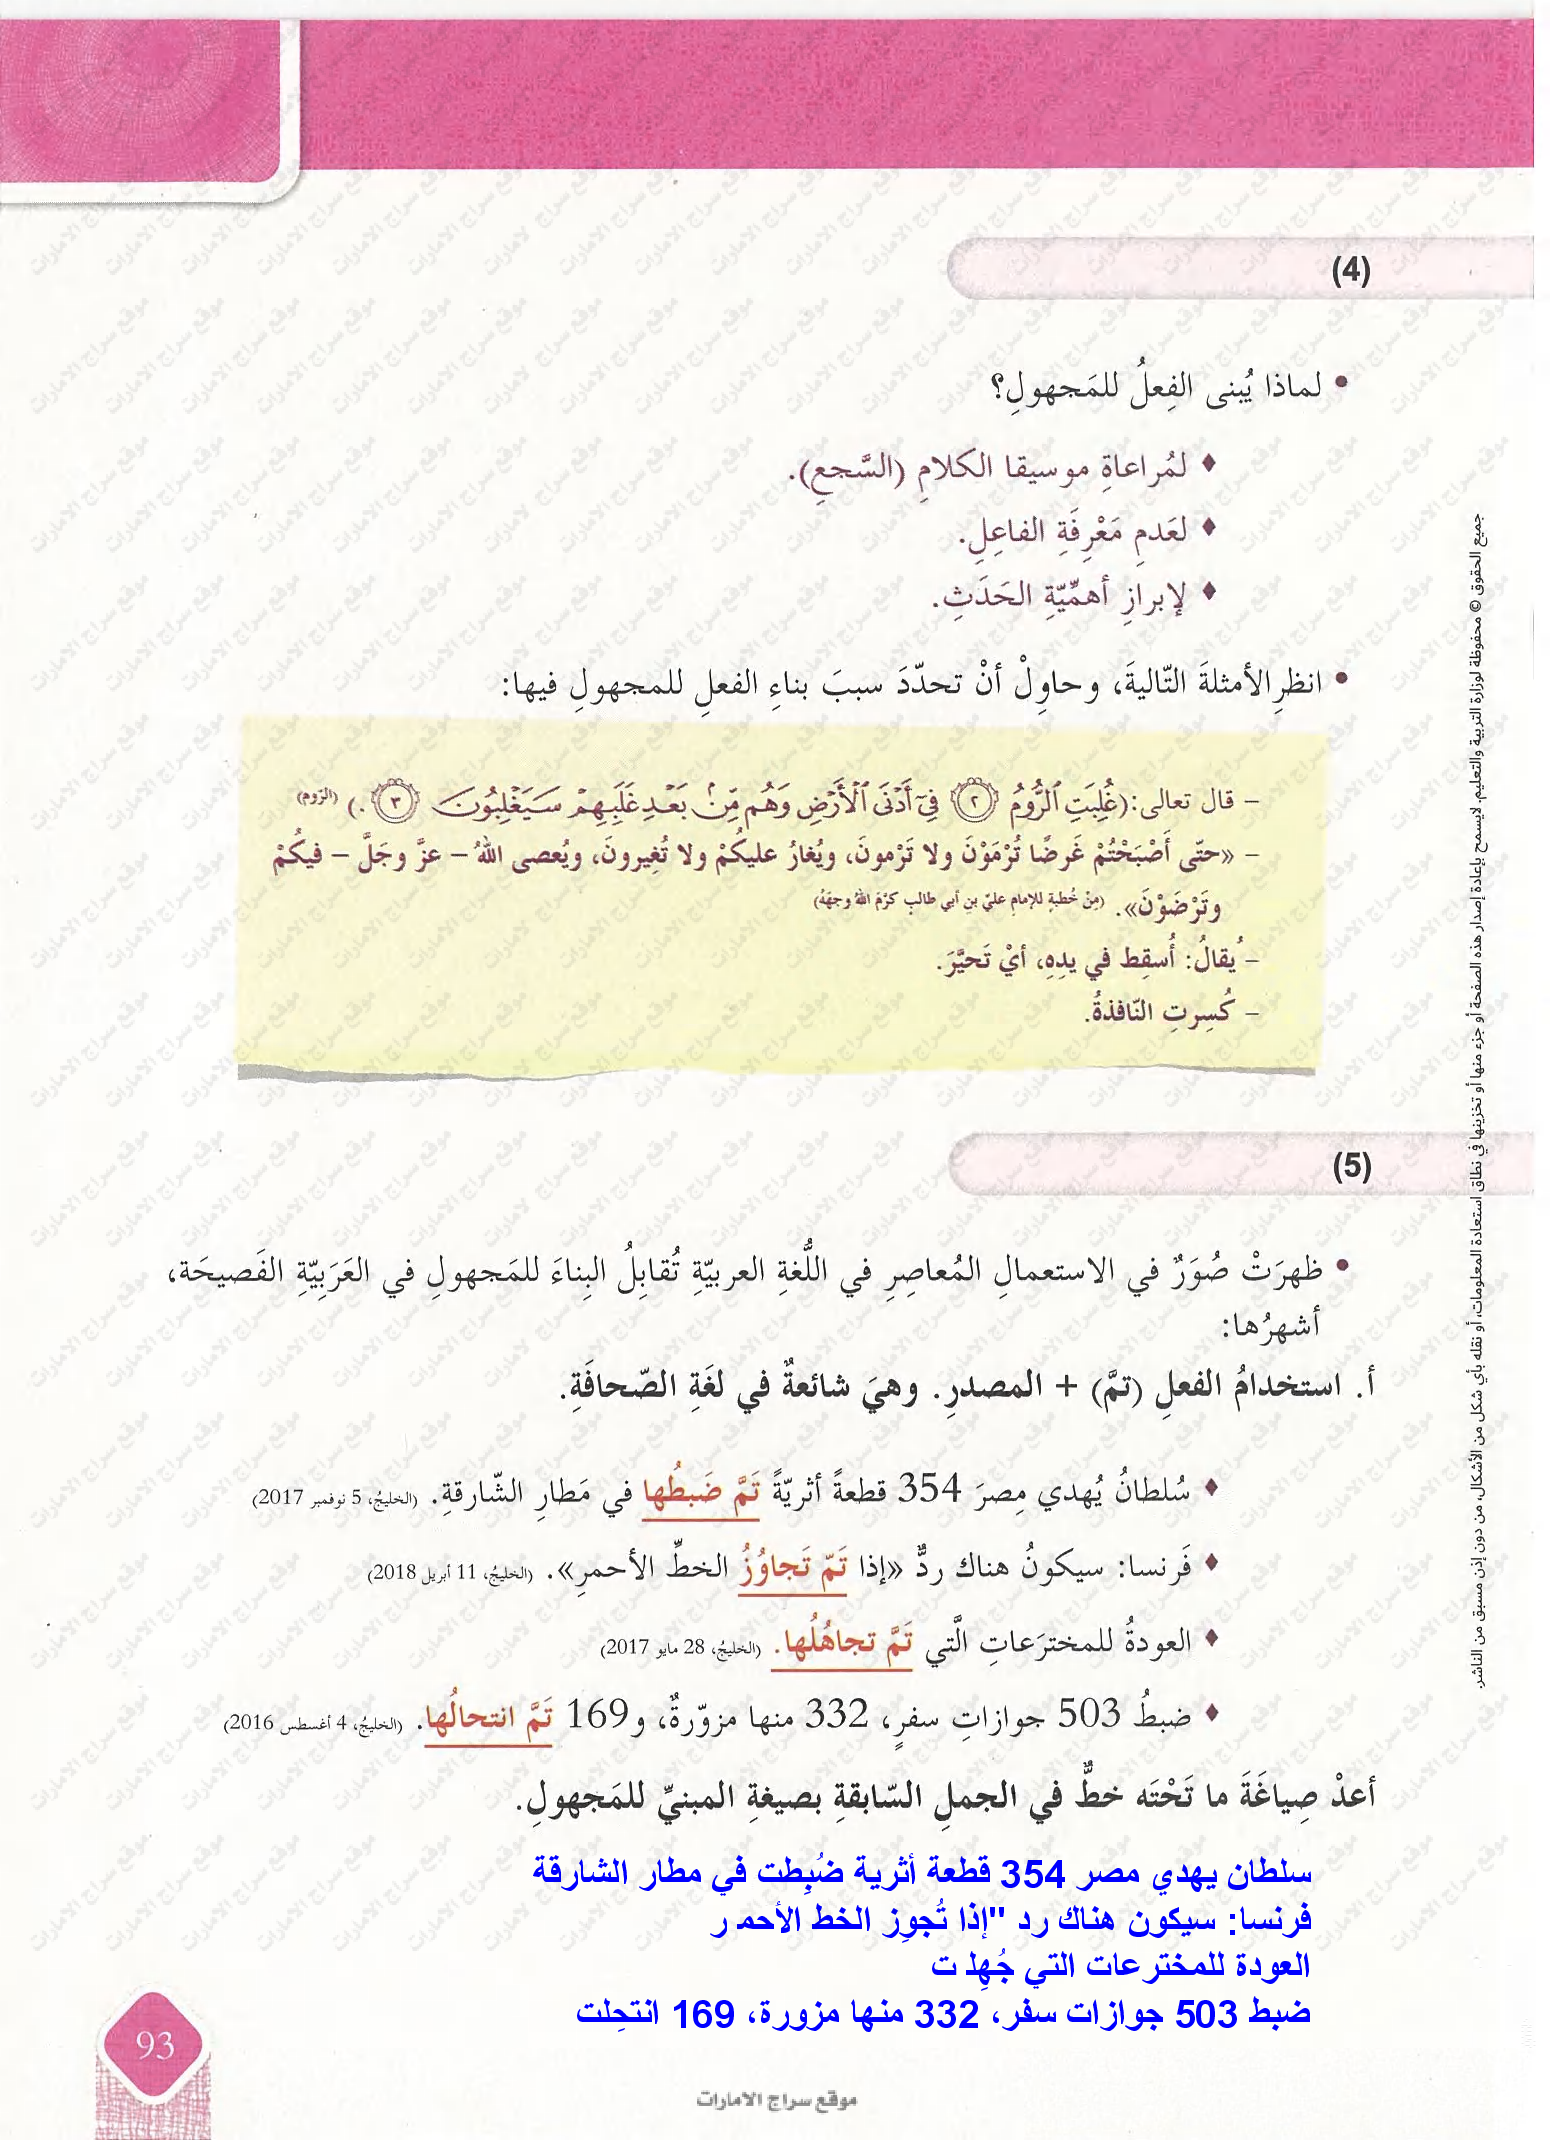 (4)
• لماذا يُبنى الفِعلُ للمَجهولِ؟
♦ لمُراعاةِ موسيقا الكلامِ (السَّجعِ).
♦ لعَدمِ مَعْرِفَةِ الفاعِلِ.
♦ لإبرازِ أهمِّيّةِ الحَدَثِ.
• انظرِ الأمثلةَ التّاليةَ، وحاوِلْ أنْ تحدّدَ سببَ بناءِ الفعلِ للمجهولِ فيها:
– قال تعالى: (غُلِبَتِ ٱلرُّومُ ٢ فِيٓ أَدۡنَى ٱلۡأَرۡضِ وَهُم مِّنۢ بَعۡدِ غَلَبِهِمۡ سَيَغۡلِبُونَ ٣ .) (الرّوم)
– «حتّى أَصْبَحْتُمْ غَرضًا تُرْمَوْنَ ولا تَرْمونَ، ويُغارُ عليكُمْ ولا تُغِيرونَ، ويُعصى اللهُ – عزَّ وجَلَّ – فيكُمْ
وتَرْضَوْنَ». (مِنْ خُطبةٍ للإمامِ عليّ بنِ أبي طالبٍ كرّمَ اللهُ وجهَهُ)
– يُقالُ: أُسقِط في يدِهِ، أيْ تَحيَّرَ.
– كُسِرتِ النّافذةُ.
(5)
• ظهرَتْ صُوَرٌ في الاستعمالِ المُعاصِرِ في اللُّغةِ العربيّةِ تُقابِلُ البِناءَ للمَجهولِ في العَرَبِيّةِ الفَصيحَة،
أشهرُها:
أ. استخدامُ الفعلِ (تمَّ) + المصدرِ. وهيَ شائعةٌ في لغَةِ الصّحافَةِ.
♦ سُلطانُ يُهدي مِصرَ 354 قطعةً أثريّةً تَمَّ ضَبطُها في مَطارِ الشّارقةِ. (الخليجُ، 5 نوفمبر 2017)
♦ فَرنسا: سيكونُ هناك ردٌّ «إذا تَمّ تَجاوُزُ الخطِّ الأحمرِ». (الخليجُ، 11 أبريل 2018)
♦ العودةُ للمخترَعاتِ الَّتي تَمَّ تجاهُلُها. (الخليجُ، 28 مايو 2017)
♦ ضبطُ 503 جوازاتِ سفرٍ، 332 منها مزوّرةٌ، و169 تَمَّ انتحالُها. (الخليجُ، 4 أغسطس 2016)
أعدْ صِياغَةَ ما تَحْتَه خطٌّ في الجملِ السّابقةِ بصيغةِ المبنيِّ للمَجهولِ.
سلطان يهدي مصر 354 قطعة أثرية ضُبِطت في مطار الشارقة
فرنسا: سيكون هناك رد "إذا تُجوِز الخط الأحمر
العودة للمخترعات التي جُهِلت
ضبط 503 جوازات سفر، 332 منها مزورة، 169 انتحِلت
93
موقع سراج الامارات
جميع الحقوق © محفوظة لوزارة التربية والتعليم. لايسمح بإعادة إصدار هذه الصفحة أو جزء منها أو تخزينها في نطاق استعادة المعلومات، أو نقله بأي شكل من الأشكال، من دون إذن مسبق من الناشر.